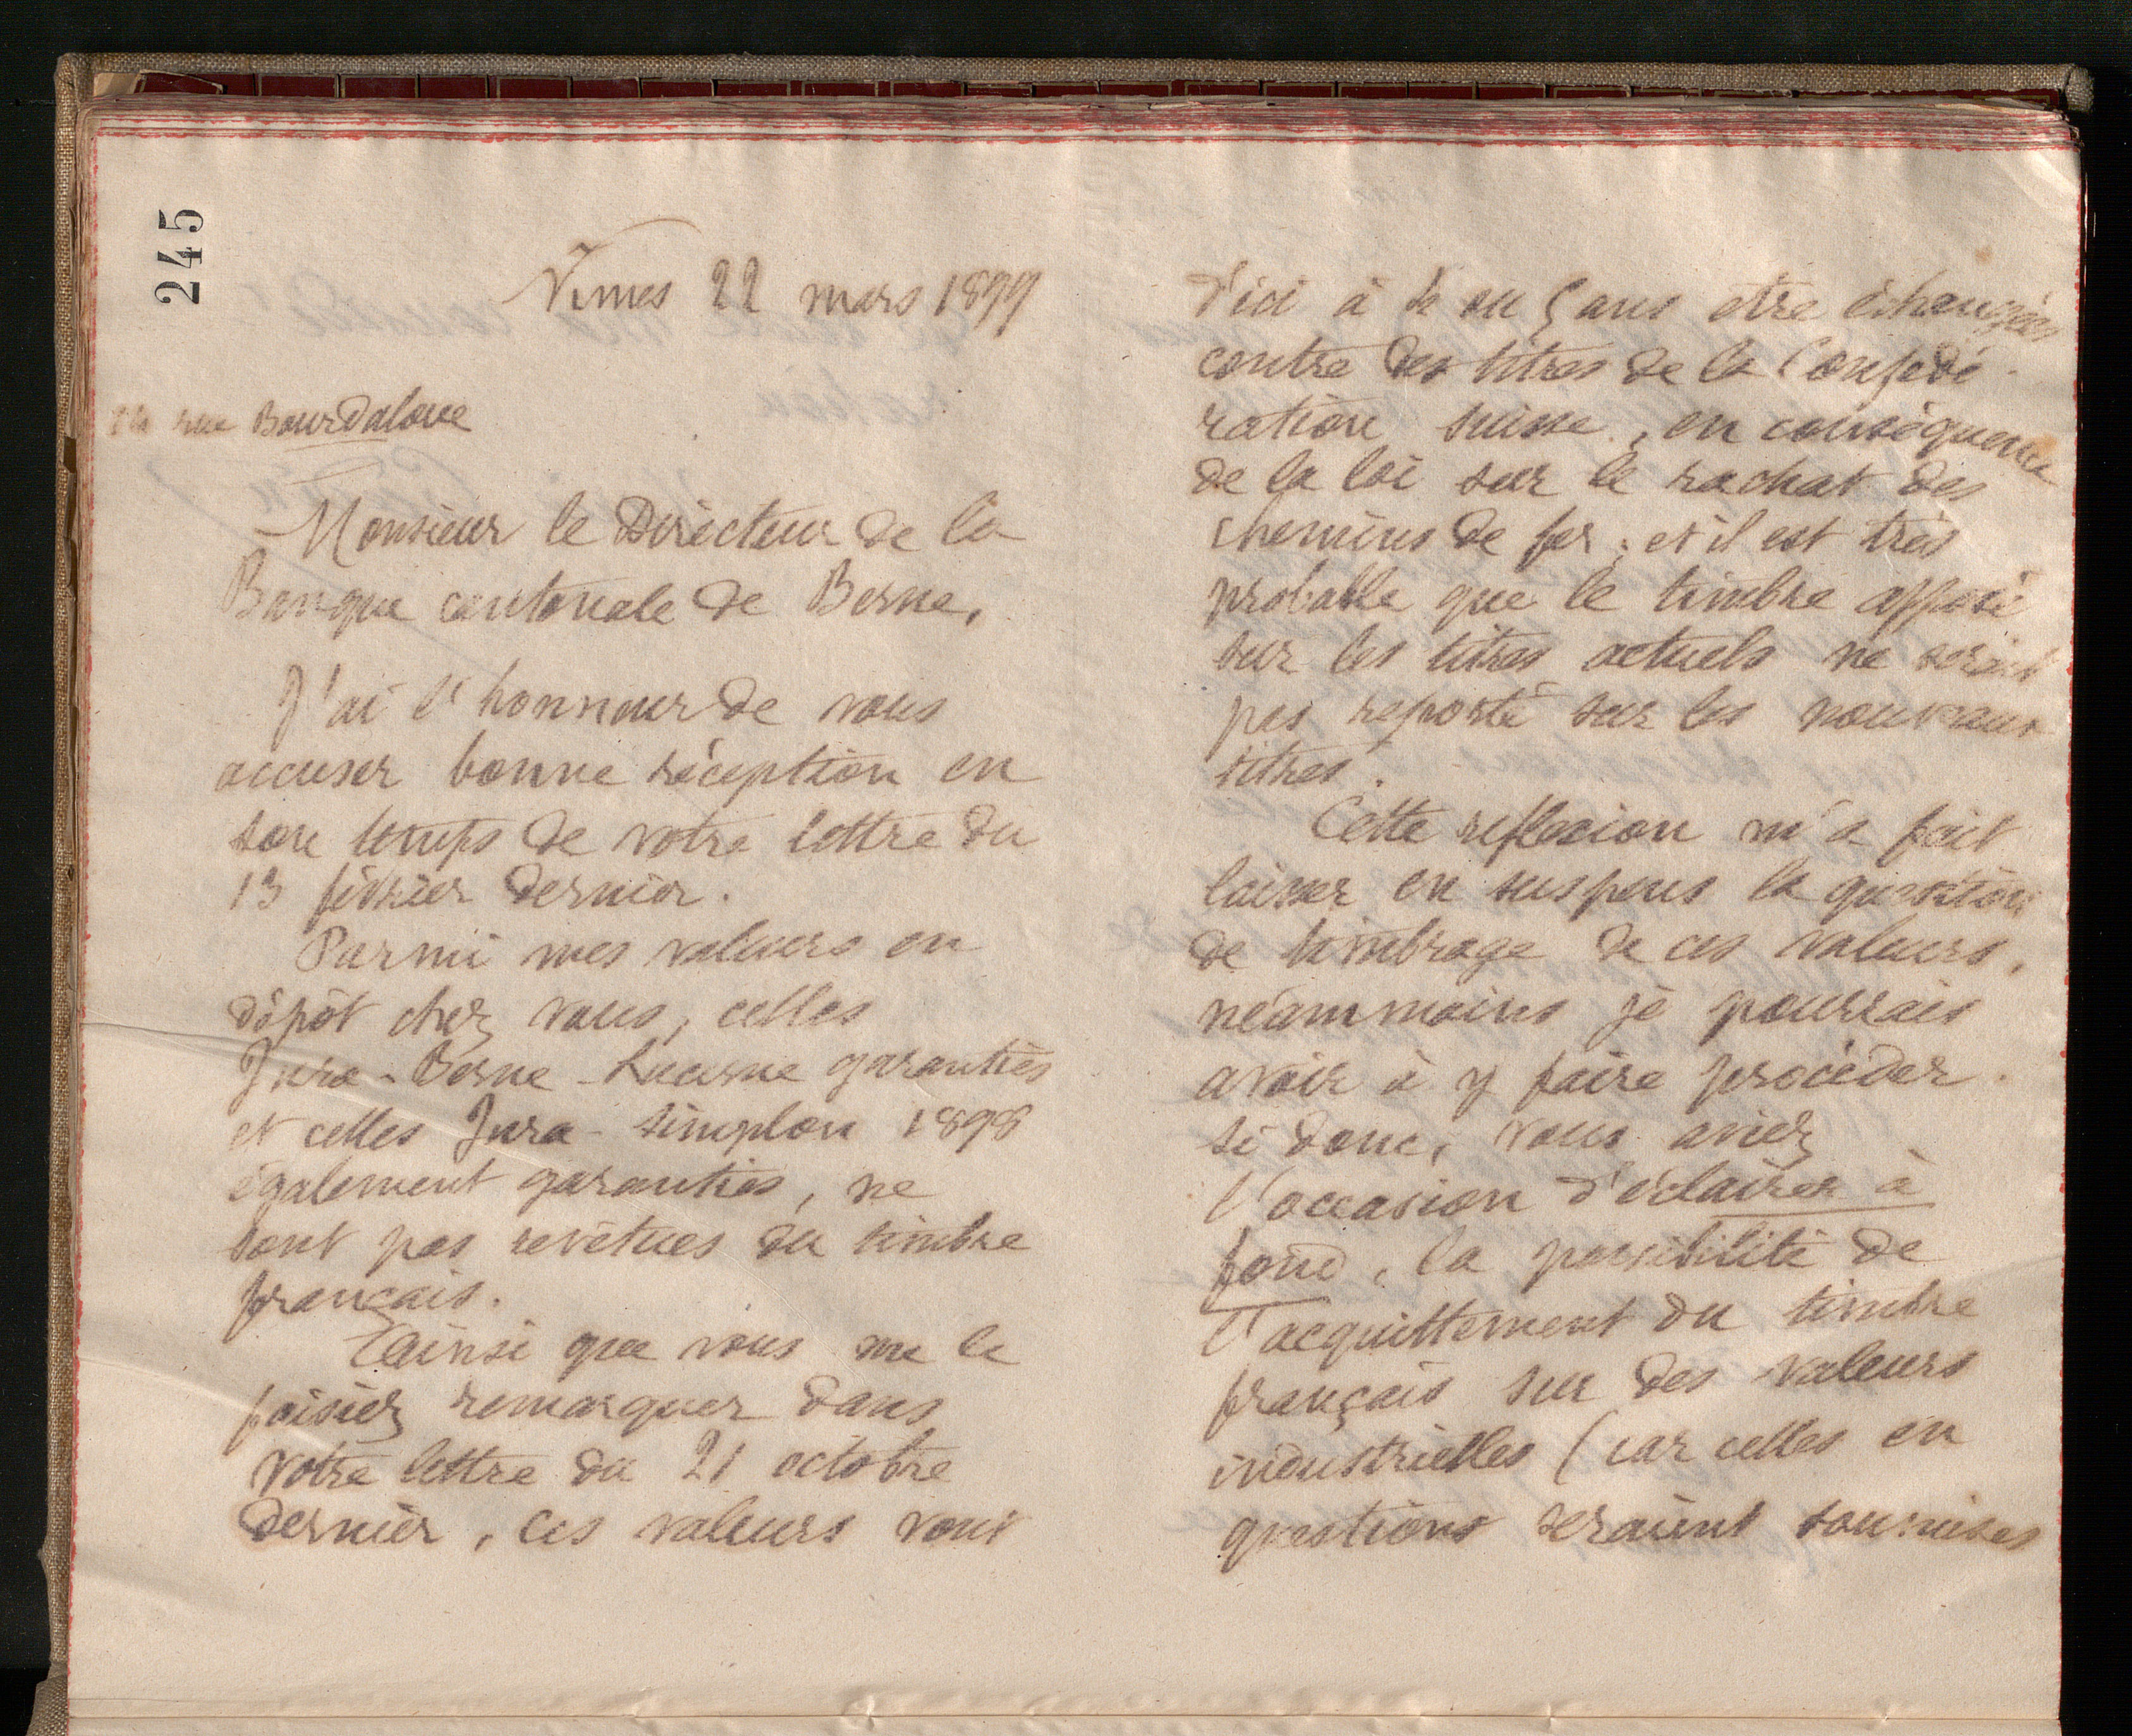 245
Nimes 22 mars 1899
14 rue Bourdaloue
Monsieur le Directeur de la
Banque cantonale de Berne,
J'ai l'honneur de vous
accuser bonne réception en
son temps de votre lettre du
13 février dernier.
Parmi mes valeurs en
dépôt chez vous, celles
Jura-Berne-Lucerne garanties
et celles Jura-Simplon 1898
également garanties, ne
sont pas revêtues du timbre
français.
Ainsi que vous me le
faisiez remarquer dans
votre lettre du 21 octobre
dernier, ces valeurs vont
d'ici à 4 ou 5 ans etre échangées
contre des titres de la Confédé
ration suisse, en conséquence
de la loi sur le rachat des
chemins de fer; et il est très
probable que le timbre apposé
sur les titres actuels ne serait
pas reporté sur les nouveaux
titres.
Cette reflexion m'a fait
laisser en suspens la question
de timbrage de ces valeurs,
néammoins je pourrais
avoir à y faire procéder.
si donc, vous aviez
l'occasion d'éclairer à
fond, la possibilité de
l'acquittement du timbre
français sur des valeurs
industrielles (car celles en
questions seraient soumises